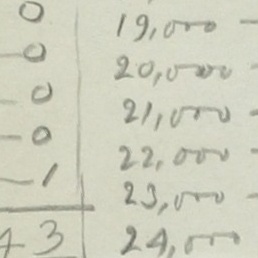 0 19,000 -
-0 20,000 -
-0 21,000 -
-0 22,000 -
-1 23,000 -
43 24,000